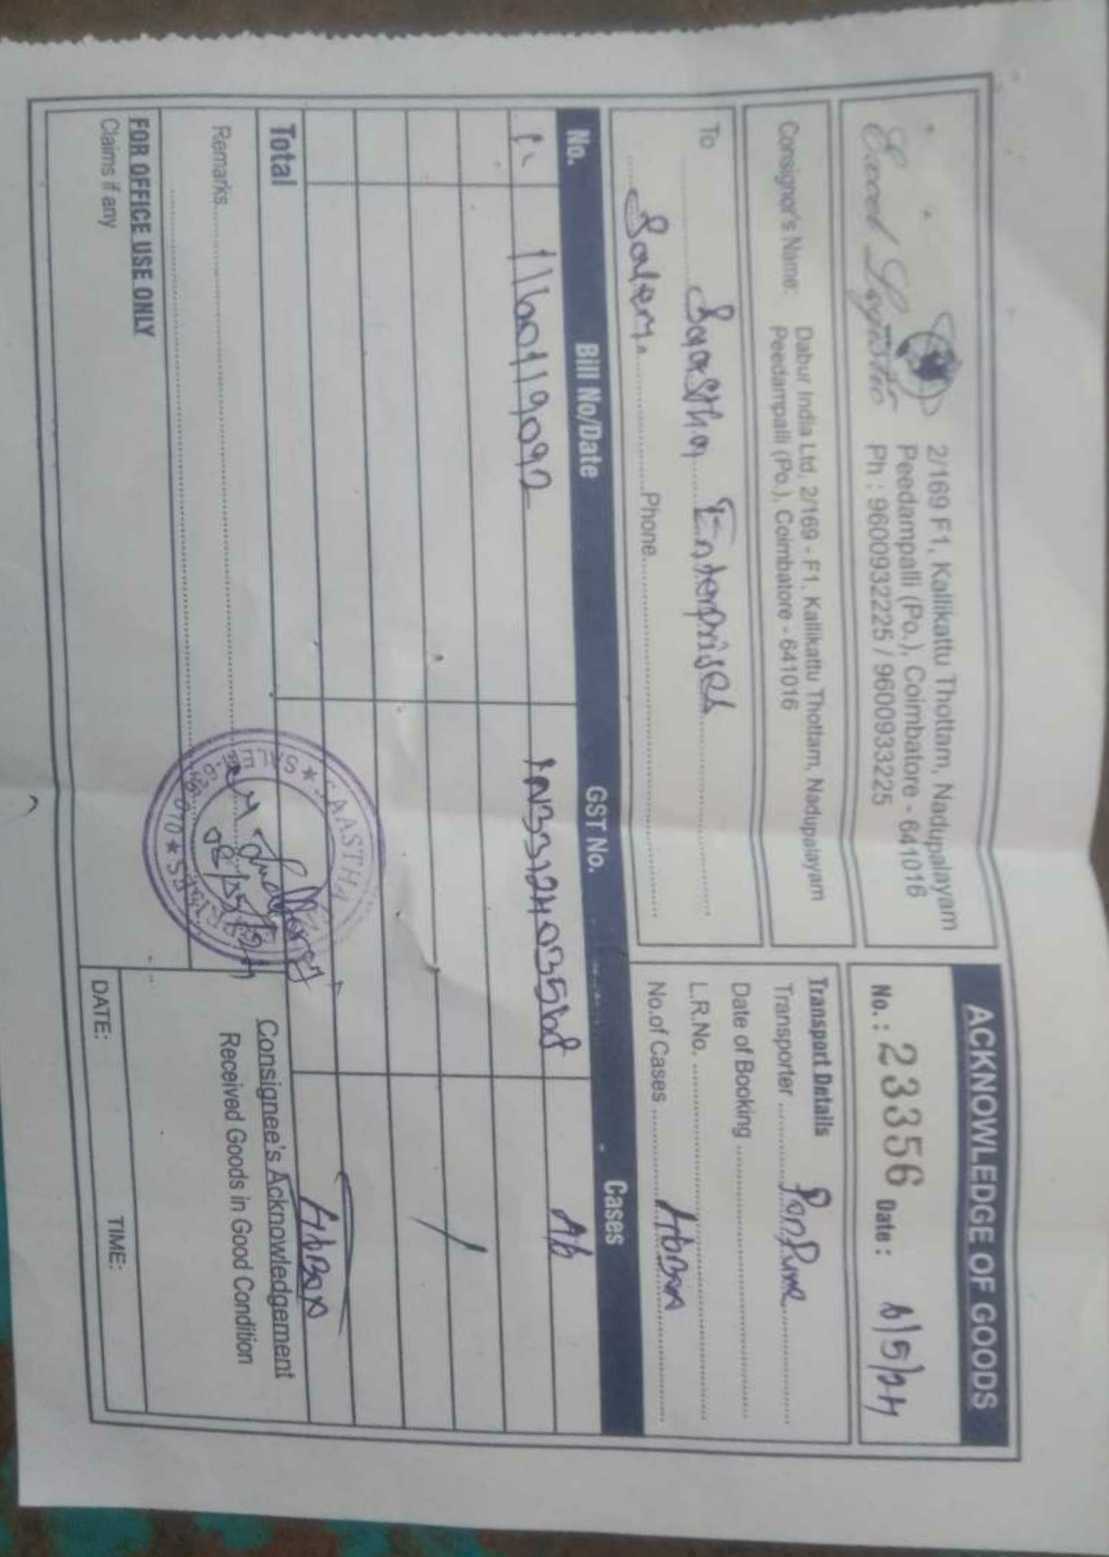 Excel Logistic
2/169 F1, Kallikattu Thottam, Nadupalayam
Peedampalli (Po.), Coimbatore - 641016
Ph : 9600932225 / 9600933225
ACKNOWLEDGE OF GOODS
No. : 23356 Date : 6/5/24
Consignor's Name: Dabur India Ltd, 2/169 - F1, Kallikattu Thottam, Nadupalayam
Peedampalli (Po.), Coimbatore - 641016
To Saastha Enterprises
Salem. Phone
Transport Details
Transporter
Date of Booking
L.R.No.
No.of Cases
No. Bill No/Date GST No. Cases
1. 1160119092
Total
Remarks
SAASTHA
SALEM
Consignee's Acknowledgement
Received Goods in Good Condition
FOR OFFICE USE ONLY
Claims if any
DATE: TIME: